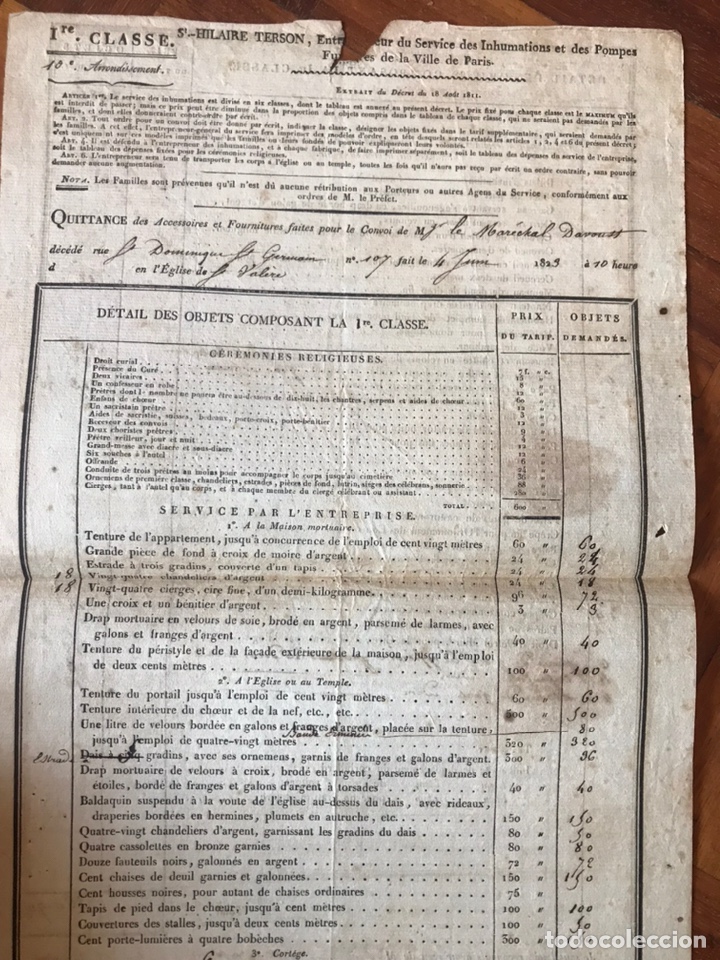 Iʳᵉ. CLASSE. Sᵗ-HILAIRE TERSON, Entr eur du Service des Inhumations et des Pompes
10ᵉ. Arrondissement. Fu res de la Ville de Paris.
EXTRAIT du Décret du 18 Août 1811.
ARTICLE 1ᵉʳ. Le service des inhumations est divisé en six classes, dont le tableau est annexé au présent décret. Le prix fixé pour chaque classe est le MAXIMUM qu'il
est interdit de passer; mais ce prix peut être diminué dans la proportion des objets compris dans le tableau de chaque classe, qui ne seraient pas demandés par les
familles, et dont elles donneraient contre-ordre par écrit.
ART. 2. Tout ordre pour un convoi doit être donné par écrit, indiquer la classe, désigner les objets fixés dans le tarif supplémentaire, qui seraient demandés par
les familles. A cet effet, l'entrepreneur-général du service fera imprimer des modèles d'ordre, en tête desquels seront relatés les articles 1, 2, 4 et 6 du présent décret;
c'est uniquement sur ces modèles imprimés que les familles ou leurs fondés de pouvoir expliqueront leurs volontés.
ART. 4. Il est défendu à l'entrepreneur des inhumations, et à chaque fabrique, de faire imprimer séparément, soit le tableau des dépenses du service de l'entreprise,
soit le tableau des dépenses fixées pour les cérémonies religieuses.
ART. 6. L'entrepreneur sera tenu de transporter les corps à l'église ou au temple, toutes les fois qu'il n'aura pas reçu par écrit un ordre contraire, sans pouvoir
demander aucune augmentation.
NOTA. Les Familles sont prévenues qu'il n'est dû aucune rétribution aux Porteurs ou autres Agens du Service, conformément aux
ordres de M. le Préfet.
QUITTANCE des Accessoires et Fournitures faites pour le Convoi de Mʳ le Maréchal Davoust
décédé rue St Dominique St Germain nº. 107 fait le 4 Juin 1823 à 10 heure
d en l'Église de St Valère
DÉTAIL DES OBJETS COMPOSANT LA Iʳᵉ. CLASSE. PRIX DU TARIF. OBJETS DEMANDÉS.
CÉRÉMONIES RELIGIEUSES.
Droit curial
Présence du Curé 7 f. " c.
Deux vicaires 15 "
Un confesseur en robe 8 "
Prêtres dont le nombre ne pourra être au-dessous de dix-huit, les chantres, serpens et aides de chœur
Enfans de chœur 12
Un sacristain prêtre
Aides de sacristie, suisses, bedeaux, porte-croix, porte-bénitier 12
Receveur des convois 12
Deux choristes prêtres 9
Prêtre veilleur, jour et nuit 4
Grand-messe avec diacre et sous-diacre 12
Six souches à l'autel 12
Offrande 6
Conduite de trois prêtres au moins pour accompagner le corps jusqu'au cimetière 24
Ornemens de première classe, chandeliers, estrades, pièces de fond, lutrin, sièges des célébrans, sonnerie 36
Cierges, tant à l'autel qu'au corps, et à chaque membre du clergé célébrant ou assistant. 280
TOTAL 600 "
SERVICE PAR L'ENTREPRISE.
1º. A la Maison mortuaire.
Tenture de l'appartement, jusqu'à concurrence de l'emploi de cent vingt mètres 60 " 60
Grande pièce de fond à croix de moire d'argent 24 " 24
Estrade à trois gradins, couverte d'un tapis 24 " 24
18 Vingt-quatre chandeliers d'argent 24 " 18
18 Vingt-quatre cierges, cire fine, d'un demi-kilogramme 96 " 72
Une croix et un bénitier d'argent 3 " 3
Drap mortuaire en velours de soie, brodé en argent, parsemé de larmes, avec
galons et franges d'argent 40 " 40
Tenture du péristyle et de la façade extérieure de la maison, jusqu'à l'emploi
de deux cents mètres 100 " 100
2º. A l'Eglise ou au Temple.
Tenture du portail jusqu'à l'emploi de cent vingt mètres 60 " 60
Tenture intérieure du chœur et de la nef, etc., etc. 500 " 500
Une litre de velours bordée en galons et franges d'argent, placée sur la tenture, 80
jusqu'à l'emploi de quatre-vingt mètres Bande 320 " 320
Estrad Dais à cinq gradins, avec ses ornemens, garnis de franges et galons d'argent. 300 " 36
Drap mortuaire de velours à croix, brodé en argent, parsemé de larmes et
étoiles, bordé de franges et galons d'argent à torsades 40 " 40
Baldaquin suspendu à la voute de l'église au-dessus du dais, avec rideaux,
draperies bordées en hermines, plumets en autruche, etc. 150 " 150
Quatre-vingt chandeliers d'argent, garnissant les gradins du dais 80 " 50
Quatre cassolettes en bronze garnies 80 " 80
Douze fauteuils noirs, galonnés en argent 72 " 72
Cent chaises de deuil garnies et galonnées 150 " 150
Cent housses noires, pour autant de chaises ordinaires 75 "
Tapis de pied dans le chœur, jusqu'à cent mètres 100 " 100
Couvertures des stalles, jusqu'à deux cents mètres 100 " 50
Cent porte-lumières à quatre bobèches 300 "
3º. Cortège.
todocoleccion